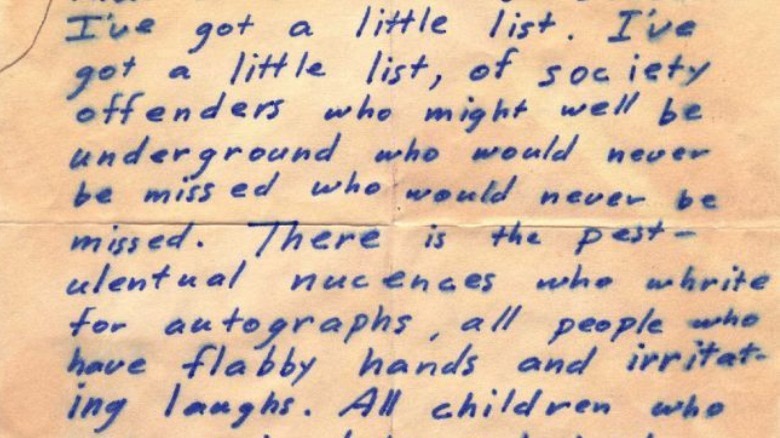 I've got a little list. I've
got a little list, of society
offenders who might well be
underground who would never
be missed who would never be
missed. There is the pest-
ulentual nucences who whrite
for autographs, all people who
have flabby hands and irritat-
ing laughs. All children who